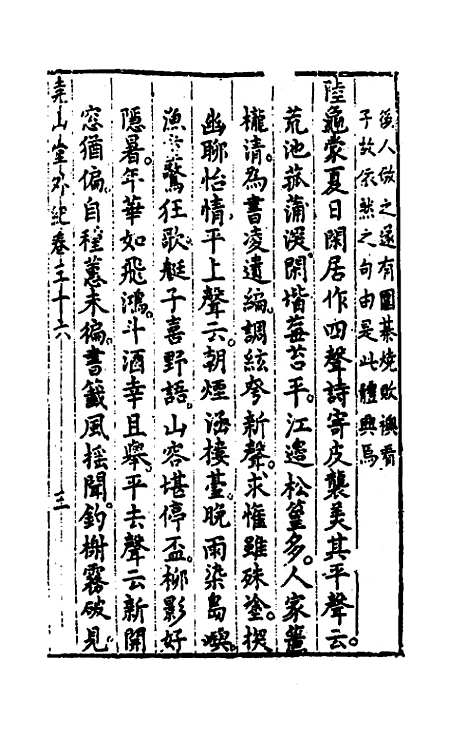 後人倣之遂有圍棊燒敗襖看
子故依然之句由是此體興焉
陸龜蒙夏日閑居作四聲詩寄皮襲美其平聲云
荒池菰蒲深閑堦莓苔平江邉松篁多人家簾
櫳清為書凌遺編調絃夸新聲求懽雖殊塗探
幽聊怡情平上聲云朝煙涵樓臺晚雨染島嶼
漁童驚狂歌艇子喜野語山容堪停盃柳影好
隱暑年華如飛鴻斗酒幸且舉平去聲云新開
窓猶偏自種蕙未徧書籖風揺聞釣榭霧破見
堯山堂外紀卷三十六
三